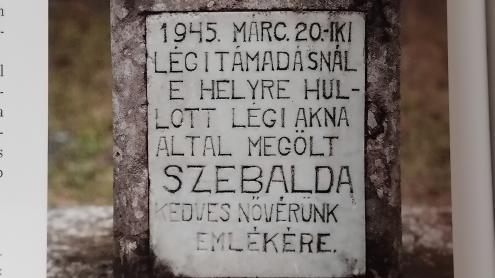 1945. MÁRC. 20.-IKI
LÉGITÁMADÁSNÁL
E HELYRE HUL-
LOTT LÉGI AKNA
ÁLTAL MEGÖLT
SZEBALDA
KEDVES NŐVÉRÜNK
EMLÉKÉRE.